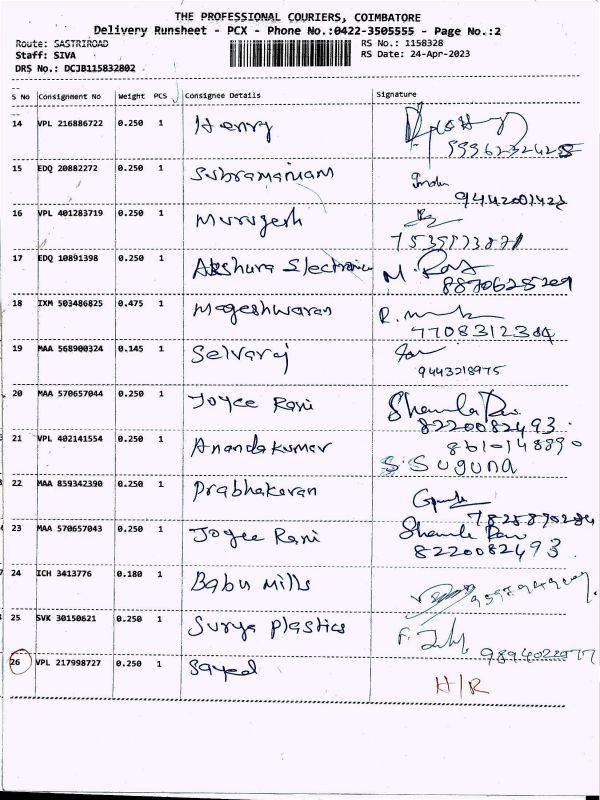 THE PROFESSIONAL COURIERS, COIMBATORE
Delivery Runsheet - PCX - Phone No.:0422-3505555 - Page No.:2
Route: SASTRIROAD RS No.: 1158328
Staff: SIVA RS Date: 24-Apr-2023
DRS No.: DCJB115832802
S No Consignment No Weight PCS Consignee Details Signature
14 VPL 216886722 0.250 1 Henry
15 EDQ 20882272 0.250 1 Subramaniam
9442001422
16 VPL 401283719 0.250 1 Murugesh
17 EDQ 10891398 0.250 1 Akshura Electronics M. Raj
18 IXM 503486825 0.475 1 Mageshwaran
19 MAA 568900324 0.145 1 Selvaraj
9443218975
20 MAA 570657044 0.250 1 Joyce Rani
8220082493
21 VPL 402141554 0.250 1 Anandakumar
S. Suguna
22 MAA 859342390 0.250 1 Prabhakaran
23 MAA 570657043 0.250 1 Joyce Rani
8220082493
24 ICH 3413776 0.180 1 Babu Mills
25 SVK 30150621 0.250 1 Surya Plastics
26 VPL 217998727 0.250 1 Sayed
H/R